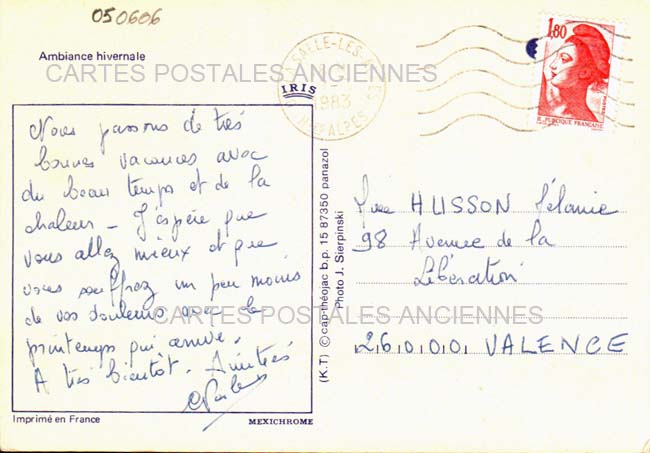 050606
Ambiance hivernale
CARTES POSTALES ANCIENNES
SALLE-LES-
1983
Htes ALPES
IRIS
1,80
REPUBLIQUE FRANÇAISE
Nous passons de très
bonnes vacances avec
du beau temps et de la
chaleur - J'espère que
vous allez mieux et que
vous souffrez un peu moins
de vos douleurs avec le
printemps qui arrive.
A très bientôt. Amitiés
CARTES POSTALES ANCIENNES
(K.T) © cap-théojac b.p. 15 87350 panazol
Photo J. Sierpinski
HUSSON Mélanie
98 Avenue de la
Libération
26000 VALENCE
Imprimé en France
MEXICHROME